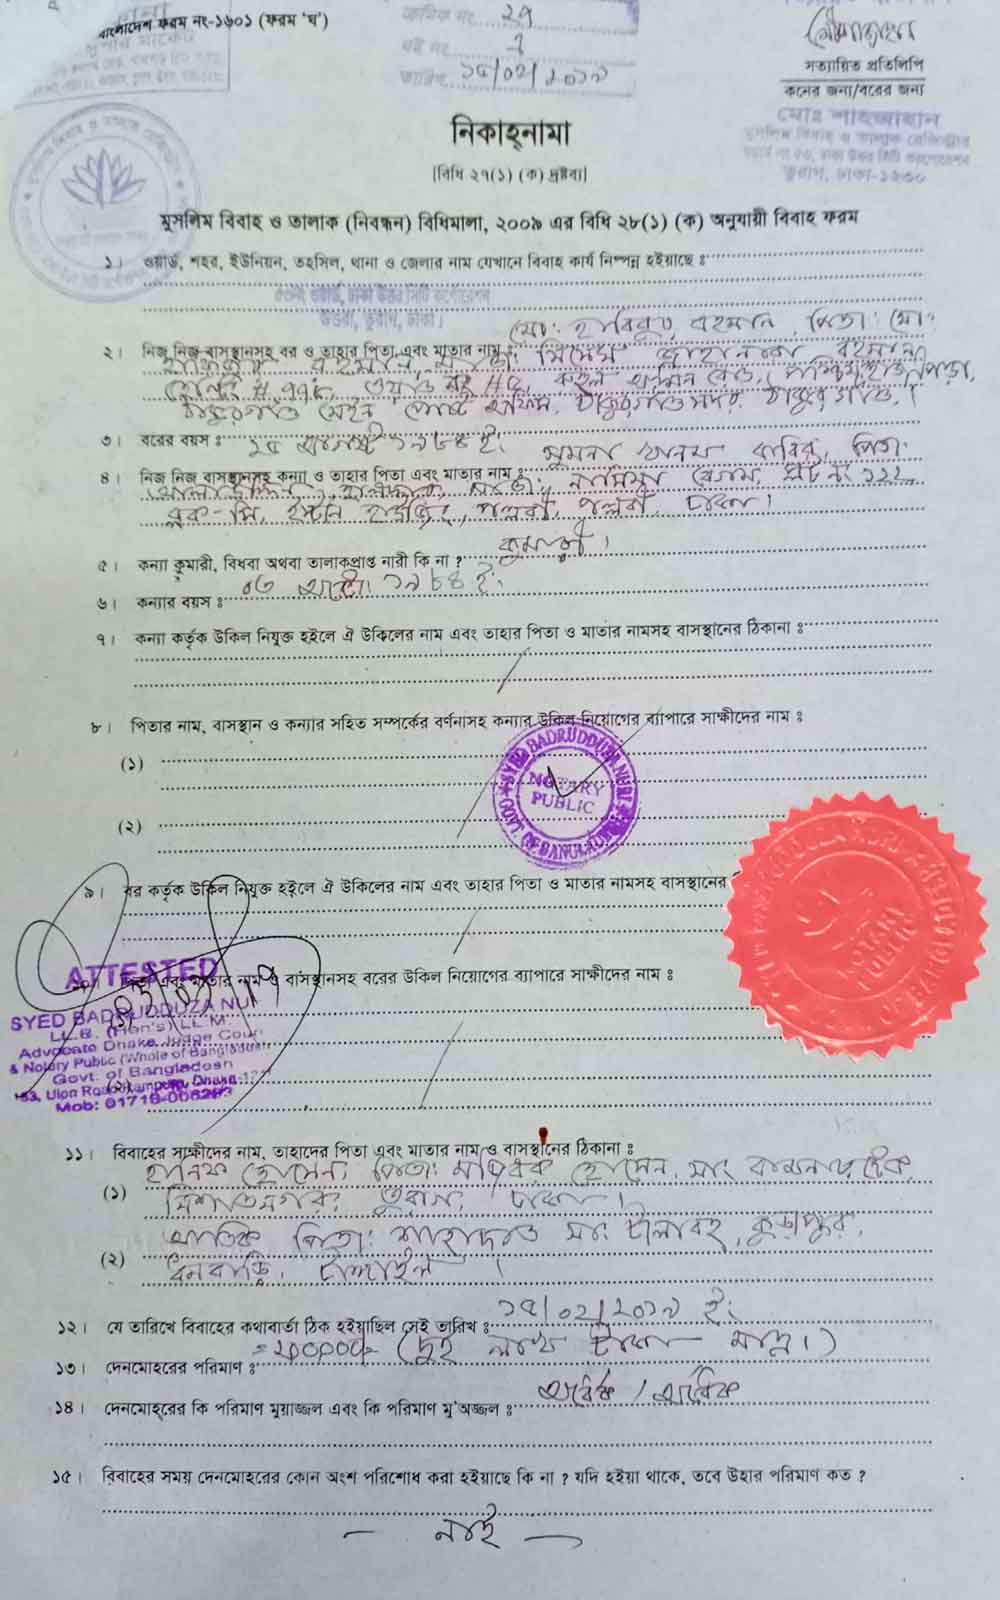 বাংলাদেশ ফরম নং-১৬০১ (ফরম 'ঘ')
ক্রমিক নং ২৭
বই নং ১
তারিখ ১৫/০২/২০১৯
সত্যায়িত প্রতিলিপি
কনের জন্য/বরের জন্য
মোঃ শাহজাহান
মুসলিম বিবাহ ও তালাক রেজিস্ট্রার
তুরাগ, ঢাকা-১২৩০
নিকাহ্‌নামা
[বিধি ২৭(১) (ক) দ্রষ্টব্য]
মুসলিম বিবাহ ও তালাক (নিবন্ধন) বিধিমালা, ২০০৯ এর বিধি ২৮(১) (ক) অনুযায়ী বিবাহ ফরম
১। ওয়ার্ড, শহর, ইউনিয়ন, তহসিল, থানা ও জেলার নাম যেখানে বিবাহ কার্য নিষ্পন্ন হইয়াছে ঃ
ওয়ার্ড, ঢাকা উত্তর সিটি কর্পোরেশন
উত্তরা, তুরাগ, ঢাকা।
মো: হাবিবুর রহমান, পিতা: মো:
২। নিজ নিজ বাসস্থানসহ বর ও তাহার পিতা এবং মাতার নাম ঃ মিসেস জাহানারা রহমান
ঠাকুরগাঁও মেইন পোস্ট অফিস, ঠাকুরগাঁও সদর, ঠাকুরগাঁও।
৩। বরের বয়স ঃ
৪। নিজ নিজ বাসস্থানসহ কন্যা ও তাহার পিতা এবং মাতার নাম ঃ নাসিমা বেগম, প্লট নং ১২২
ব্লক-সি, ইস্টার্ন হাউজিং, পল্লবী, পল্লবী, ঢাকা।
৫। কন্যা কুমারী, বিধবা অথবা তালাকপ্রাপ্ত নারী কি না ? কুমারী।
৬। কন্যার বয়স ঃ ০৬ অক্টো: ১৯৮৪ ইং
৭। কন্যা কর্তৃক উকিল নিযুক্ত হইলে ঐ উকিলের নাম এবং তাহার পিতা ও মাতার নামসহ বাসস্থানের ঠিকানা ঃ
৮। পিতার নাম, বাসস্থান ও কন্যার সহিত সম্পর্কের বর্ণনাসহ কন্যার উকিল নিয়োগের ব্যাপারে সাক্ষীদের নাম ঃ
(১)
(২)
SYED BADRUDDUZA NURI
NOTARY
PUBLIC
GOVT. OF BANGLADESH
৯। বর কর্তৃক উকিল নিযুক্ত হইলে ঐ উকিলের নাম এবং তাহার পিতা ও মাতার নামসহ বাসস্থানের
এবং মাতার নাম ও বাসস্থানসহ বরের উকিল নিয়োগের ব্যাপারে সাক্ষীদের নাম ঃ
(২)
ATTESTED
SYED BADRUDDUZA NURI
LL.B. (Hon's) LL.M
Advocate Dhaka Judge Court
& Notary Public (Whole of Bangladesh)
Govt. of Bangladesh
Mob: 01716-
NOTARY
PUBLIC
১১। বিবাহের সাক্ষীদের নাম, তাহাদের পিতা এবং মাতার নাম ও বাসস্থানের ঠিকানা ঃ
(১) হোসেন, পিতা: হোসেন, সাং
তুরাগ, ঢাকা।
(২) আতিক পিতা: শাহাদাত সাং
ধনবাড়ি, টাঙ্গাইল।
১২। যে তারিখে বিবাহের কথাবার্তা ঠিক হইয়াছিল সেই তারিখ ঃ ১৫/০২/২০১৯ ইং
১৩। দেনমোহরের পরিমাণ ঃ =২০০০০০/- (দুই লাখ টাকা মাত্র।)
১৪। দেনমোহ্‌রের কি পরিমাণ মুয়াজ্জল এবং কি পরিমাণ মু'অজ্জল ঃ অর্ধেক / অর্ধেক
১৫। বিবাহের সময় দেনমোহরের কোন অংশ পরিশোধ করা হইয়াছে কি না ? যদি হইয়া থাকে, তবে উহার পরিমাণ কত ?
— নাই —